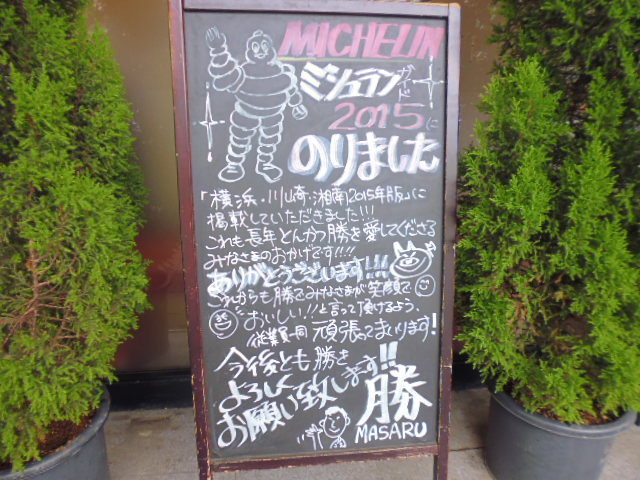 MICHELIN
ミシュランガイド
2015に
のりました
「横浜・川崎・湘南2015年版」に
掲載していただきました!!!
これも長年とんかつ勝を愛してくださる
みなさまのおかげです!!!!
ありがとうございます!!!
これからも勝でみなさまが笑顔で
おいしい!!と言って頂けるよう、
従業員一同 頑張ってまいります!
今後とも勝を
よろしく
お願い致します!!
勝
MASARU